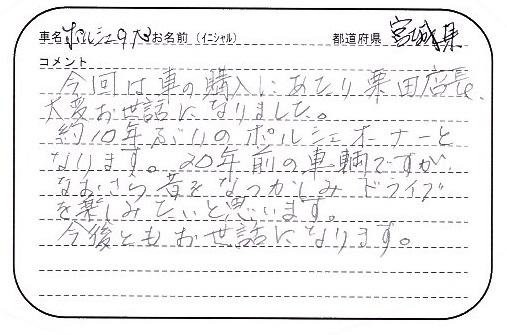 車名 ポルシェ9 お名前(イニシャル) 都道府県 宮城県
コメント
今回は車の購入にあたり栗田店長、
大変お世話になりました。
約10年ぶりのポルシェオーナーと
なります。20年前の車輌ですが、
なおさら昔をなつかしみドライブ
を楽しみたいと思います。
今後ともお世話になります。